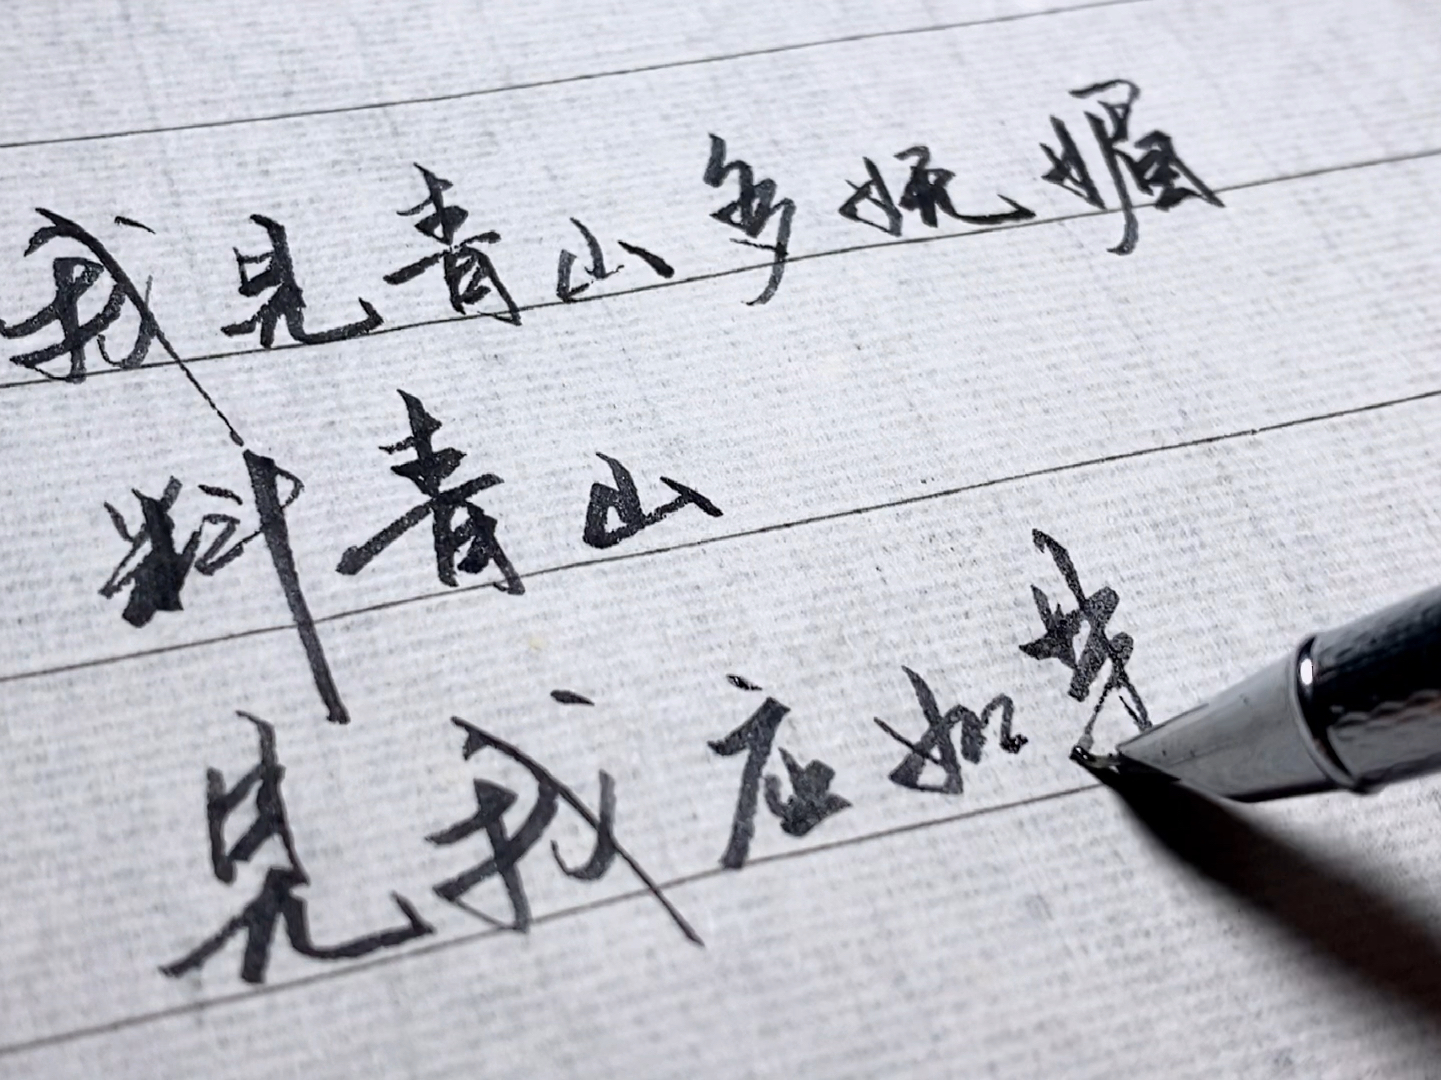 我見青山多妩媚
料青山
見我应如是